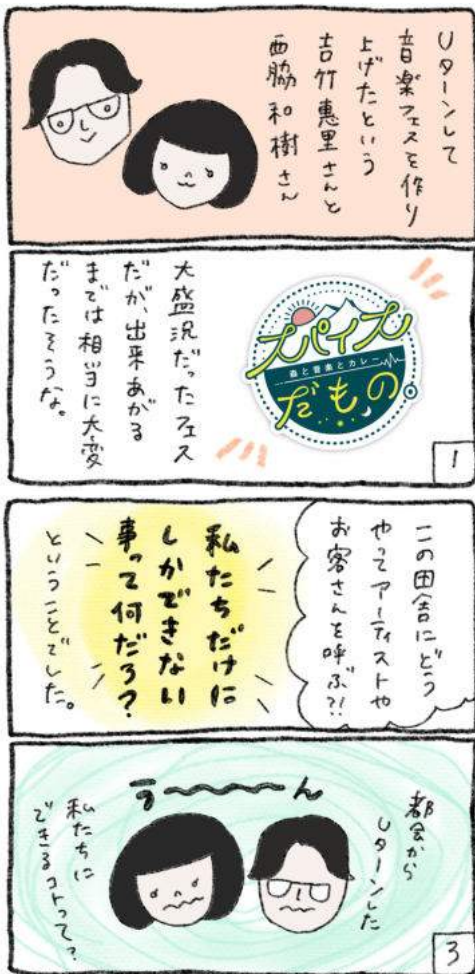 Uターンして
音楽フェスを作り
上げたという
吉竹恵里さんと
西脇和樹さん
スパイス
森と音楽とカレー
だもの。
大盛況だったフェス
だが、出来あがる
までは相当に大変
だったそうな。
1
この田舎にどう
やってアーティストや
お客さんを呼ぶ?!
私たちだけに
しかできない
事って何だろ?
ということでした。
う〜〜〜ん
都会から
Uターンした
私たちに
できるコトって?
3